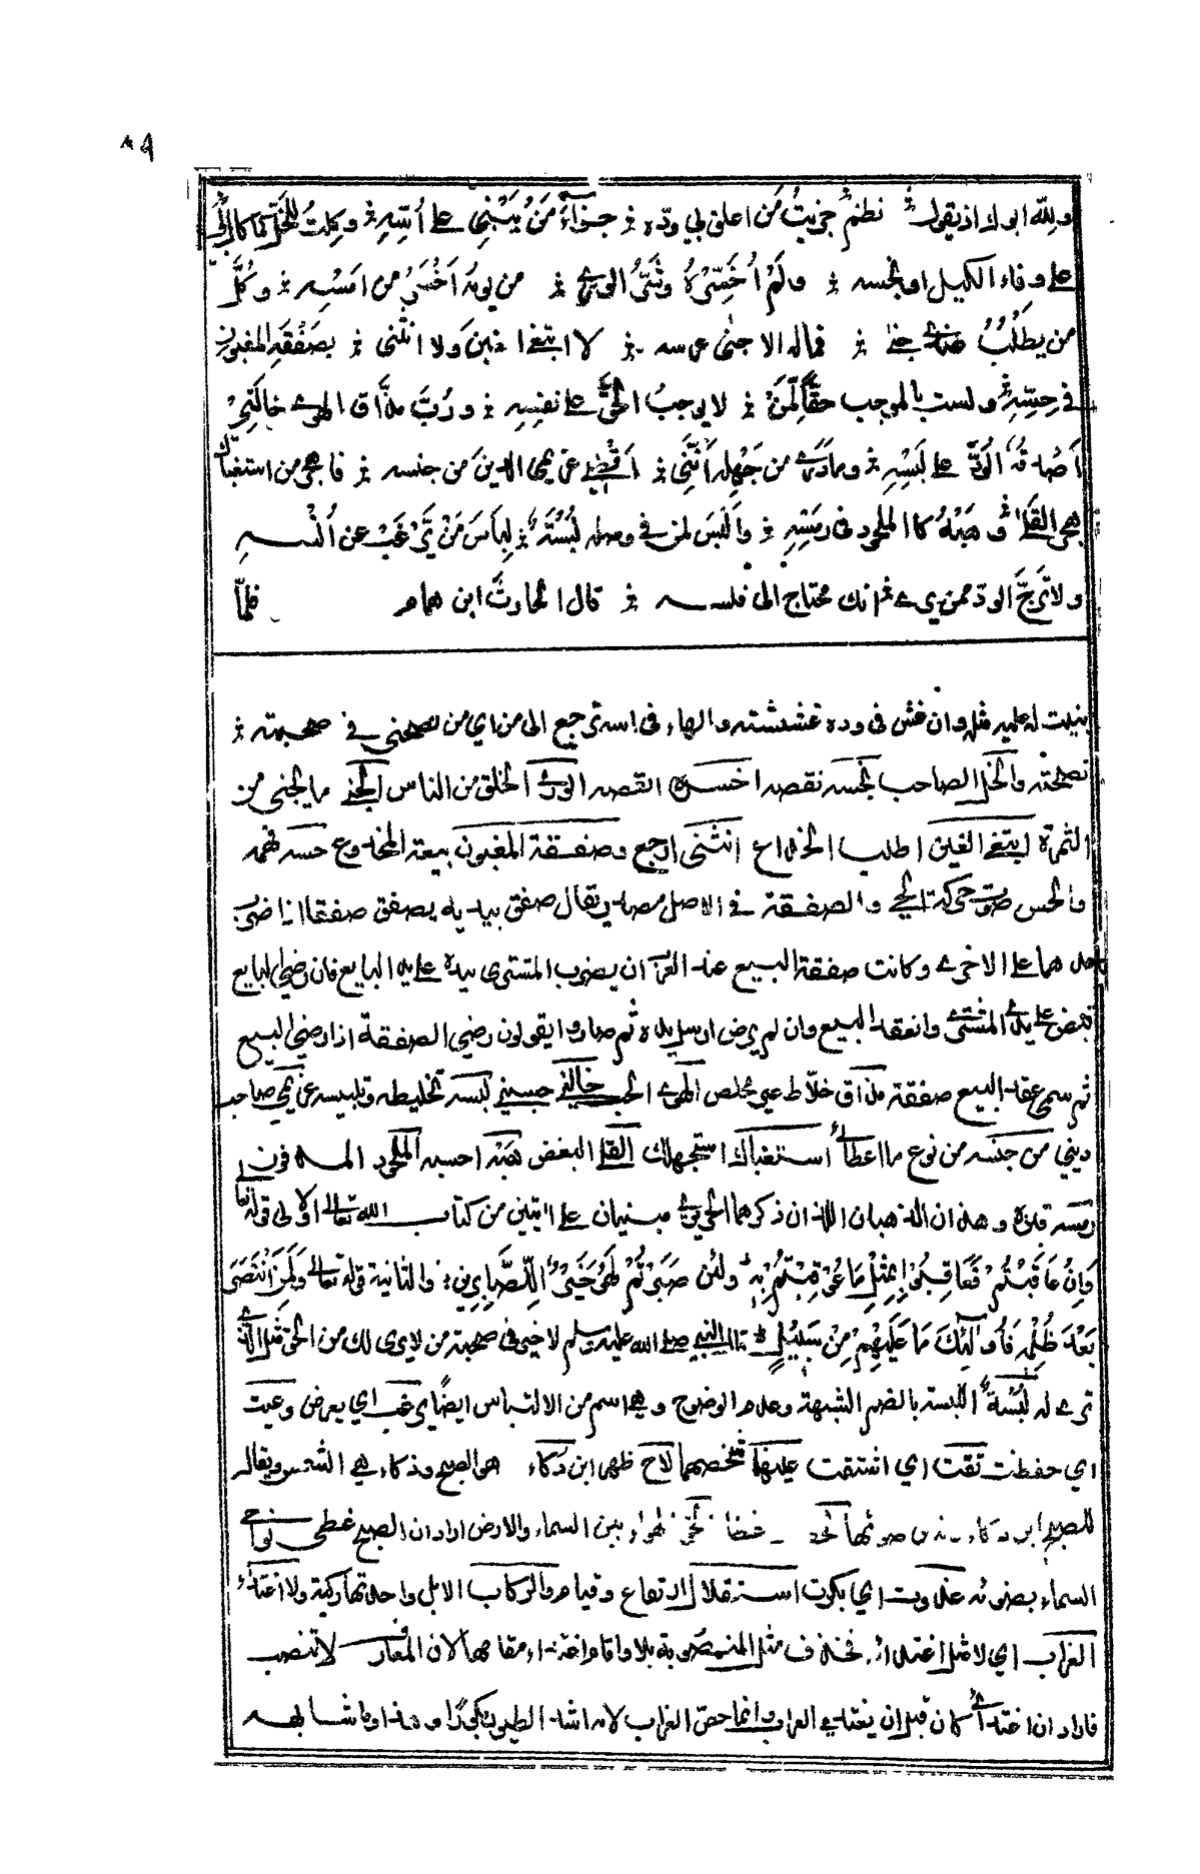 ٨٩
ولله ابوك اذ يقول نظم جزيتُ مَن اعلق بي ودّه جزاءَ مَنْ يَبْنِي على أُسِّهِ وكِلتُ للخل كما كال لي
على وفاء الكيل او بخسه ولَمْ اُخَسِّرْهُ وشَرُّ الورى من يومُه اَخْسَرُ من امسِه وكُلُّ
من يطلُبُ عندي جنا فماله الا جنى غرسه لا ابتغي الغبن ولا انثنى بصَفْقَةِ المغبون
في حِسِّهِ ولست بالموجب حقًّا لِمَنْ لا يوجبُ الحقَّ على نفسِهِ ورُبَّ مذّاق الهوى خالَنِي
اَصْدُقُهُ الوُدَّ على لَبْسِهِ وما درى من جَهْلِه اَنَّنِي اَقضي غريمي الدين من جنسه فاهجر من استغباك
هجر القلى وهَبْهُ كالملحود في رمسِهِ والبَس لمن في وصله لُبْسَةٌ لِباسَ مَنْ يُرْغَبُ عن اُنْسِه
ولا تُرَجِّ الودّ ممن يرى انك محتاج الى فلسه قال الحارثُ ابن همام فلمّا
بنيت له عليه مثله وان غش في وده غششته والهاء في اسه ترجع الى من اي من نصحني في صحبته
نصحته والخل الصاحب بخسه نقصه اخسره انقصه الورى الخلق من الناس الجنى ما يجنى من
الثمرة ابتغي الغبن اطلب الخداع انثنى ارجع وصفقة المغبون بيعة المخدوع حسه فهمه
والحس صوت حركة الحي والصفقة في الاصل مصدر يقال صفق بيديه يصفق صفقا اذا ضرب
احدهما على الاخرى وكانت صفقة البيع عند العرب ان يضرب المشترى بيده على يد البايع فان رضي البايع
قبض على يد المشتري وانعقد البيع وان لم يرض ارسل يده ثم صاروا يقولون رضي الصفقة اذا رضي البيع
ثم سمي عقد البيع صفقة مذاق خلّاط غير مخلص الهوى الحب خالني حسبني لبسه تخليطه وتلبيسه غريمي صاحب
ديني من جنسه من نوع ما اعطى استغباك استجهلك القلى البغض هبه احسبه الملحود المدفون
رمسه قبره وهذان المذهبان اللذان ذكرهما الحريري مبنيان على ايتين من كتاب الله تعالى الاولى قوله تعالى
وَاِنْ عَاقَبْتُمْ فَعَاقِبُوا بِمِثْلِ مَا عُوْقِبْتُمْ بِهِ ولئن صَبَرْتُمْ لَهُوَ خَيْرٌ لِلصَّابِرِينَ والثانية قوله تعالى ولَمَنِ انْتَصَرَ
بَعْدَ ظُلْمِهِ فَاُولٰئِكَ مَا عَلَيْهِمْ مِنْ سَبِيْلٍ قال النبي صلى الله عليه وسلم لا خير في صحبة من لا يرى لك من الحق مثل الذي
ترى له لُبْسَةٌ اللبسة بالضم الشبهة وعدم الوضوح وهي اسم من الالتباس ايضًا يرغب اي يعرض وعيت
اي حفظت تقت اي اشتقت عينهما شخصهما لاح ظهر ابن ذكاء هو الصبح وذكاء هي الشمس ويقال
للصبح ابن ذكاء بين السماء والارض اراد ان الصبح غطى نواحي
السماء بضوئه غدوت اي بكرت استقلال ارتفاع وقيام والركاب الابل واحدتها ركيبة ولا اغتداء
الغراب اي لا مثل اغتداء فحذف مثل المنصوبة بلا واقام اغتداء مقامها لان المعارف لا تنصب
فاراد ان اغتدائي كان قبل ان يغتدي الغراب وانما خص الغراب لانه اشد الطير بكورًا وهذا وما شابهه